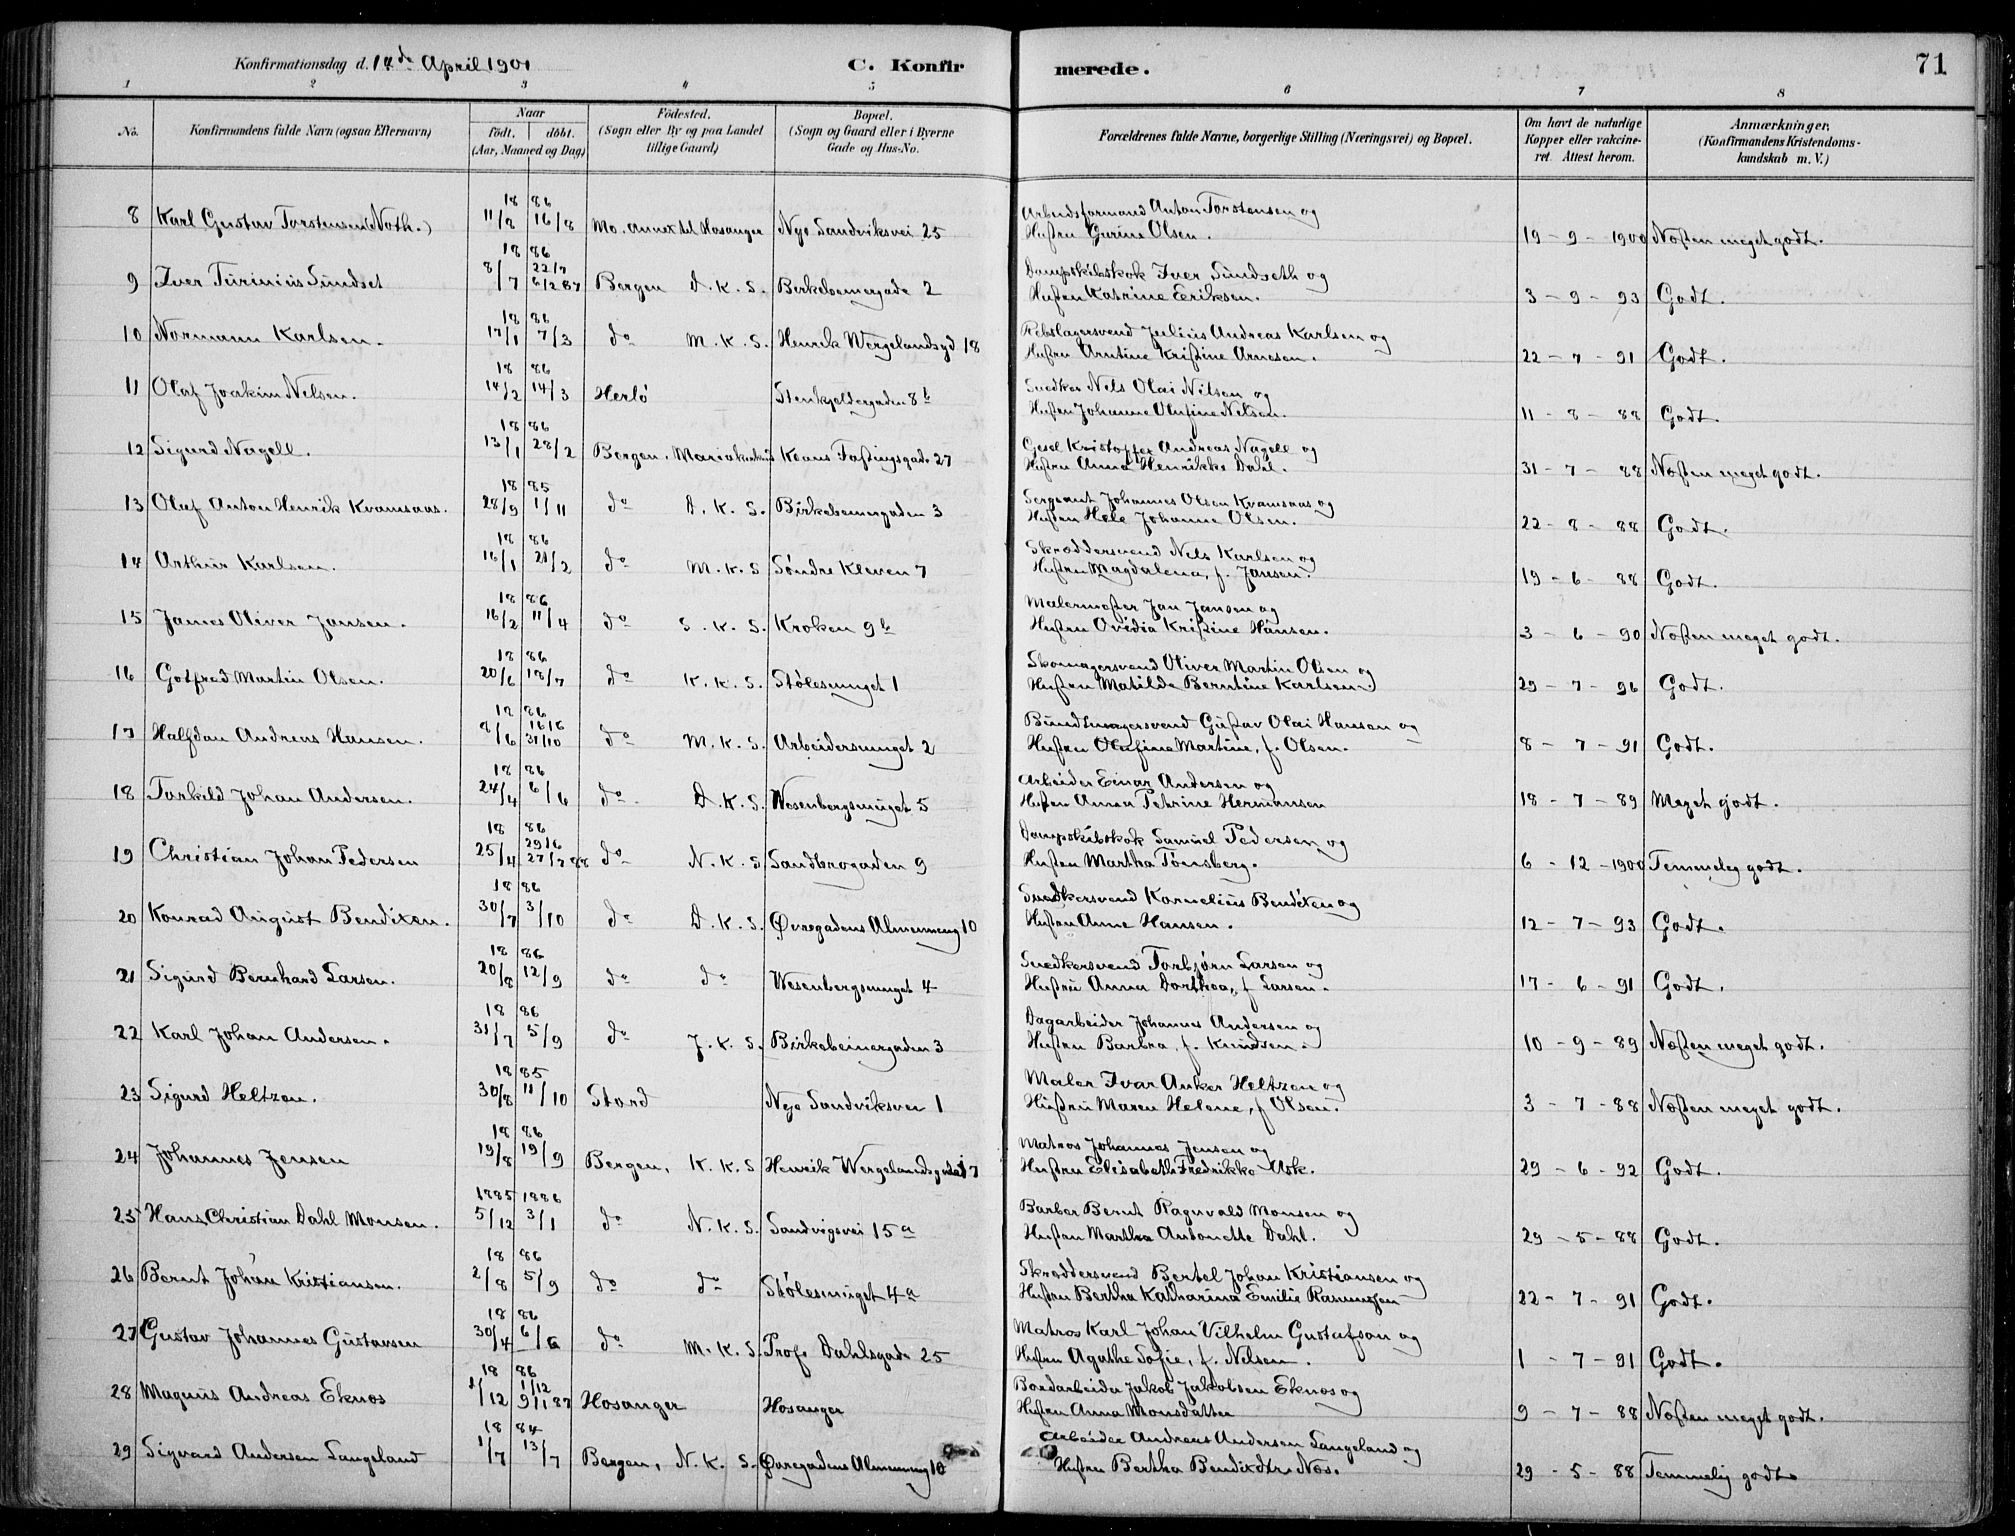 Konfirmationsdag d. 14de April 1901 C. Konfirmerede. 71
1 2 3 4 5 6 7 8
No. Konfirmandens fulde Navn (ogsaa Efternavn) Naar födt. döbt. (Aar, Maaned og Dag) Födested. (Sogn eller By og paa Landet tillige Gaard) Bopæl. (Sogn og Gaard eller i Byerne Gade og Hus-No. Forældrenes fulde Navne, borgerlige Stilling (Næringsvei) og Bopæl. Om havt de naturlige Kopper eller vakcineret. Attest herom. Anmærkninger. (Konfirmandens Kristendomskundskab m. V.)
18 86
8 Karl Gustav Torstensen (Noth.) 11/8 16/8 Mo. Annex til Hosanger Nye Sandviksvei 25 Arbeidsformand Anton Torstensen og
Hustru Gurine Olsen. 19 - 9 - 1900 Næsten meget godt.
18 86
22/7
9 Iver Turinius Sundset 8/7 6/2 87 Bergen D. K. S. Birkebeinergade 2 Dampskibskok Iver Sundseth og
Hustru Katrine Eeriksen. 3 - 9 - 93 Godt.
18 86
10 Normann Karlsen. 17/1 7/3 do M. K. S. Henrik Wergelandsgd 18 Rebslagersvend Julius Andreas Karlsen og
Hustru Arntine Kristine Arnesen. 22 - 7 - 91 Godt.
18 86
11 Olaf Joakim Nilsen. 14/2 14/3 Herlö Stenkjeldergaden 8b Snedker Nils Olai Nilsen og
Hustru Johanne Olufine Nilsen. 11 - 8 - 88 Godt.
18 86
12 Sigurd Nagell. 13/1 28/2 Bergen. Mariakirken Klaus Fastingsgade 27 Gesel Kristoffer Andreas Nagell og
Hustru Anna Henrikke Dahl. 31 - 7 - 88 Næsten meget godt.
18 85
13 Olaf Anton Henrik Kvamsaas. 28/9 1/11 do D. K. S. Birkebeinergaden 3 Sergeant Johannes Olsen Kvamsaas og
Hustru Hele Johanne Olsen. 22 - 8 - 88 Godt.
18 86
14 Arthur Karlsen. 16/1 21/2 do M. K. S Søndre Kleven 7 Skræddersvend Nils Karlsen og
Hustru Magdalena, f. Jansen. 19 - 6 - 88 Godt.
18 86
15 James Oliver Jansen. 16/2 11/4 do S. K. S. Kroken 9b Malermester Jan Jansen og
Hustru Ovidia Kristine Hansen. 3 - 6 - 90 Næsten meget godt.
18 86
16 Gotfred Martin Olsen. 20/6 18/7 do K. K. S. Stølesmuget 1 Skomagersvend Oliver Martin Olsen og
Hustru Matilde Berntine Karlsen. 29 - 7 - 96 Godt.
18 86
16/6
17 Halfdan Andreas Hansen. 8/6 31/10 do M. K. S. Arbeidersmuget 2 Bundtmagersvend Gustav Olai Hansen og
Hustru Olufine Martine, f. Olsen. 8 - 7 - 91 Godt.
18 86
18 Torkild Johan Andersen. 24/4 6/6 do D. K. S. Wesenbergsmuget 5 Arbeider Einar Andersen og
Hustru Anna Petrine Hermansen 18 - 7 - 89 Meget godt.
18 86
29/6
19 Christian Johan Pedersen 25/4 27/7 88 do N. K. S. Sandbrogaden 9 Dampskibskok Samuel Pedersen og
Hustru Martha Tönsberg. 6 - 12 - 1900 Temmelig godt.
18 86
20 Konrad August Bendixen. 30/7 3/10 do D. K. S. Øvregadens Almenning 10 Snedkersvend Kornelius Bendixen og
Hustru Anne Hansen. 12 - 7 - 93 Godt.
18 86
21 Sigurd Bernhard Larsen. 20/8 12/9 do do Wesenbergsmuget 4 Snedkersvend Torbjørn Larsen og
Hustru Anna Dorthea, f Larsen. 17 - 6 - 91 Godt.
18 86
22 Karl Johan Andersen. 31/7 5/9 do J. K. S. Birkebeinergaden 3 Dagarbeider Johannes Andersen og
Hustru Barbra, f. Knudsen. 10 - 9 - 89 Næsten meget godt.
18 85
23 Sigurd Heltzen. 30/8 11/10 Stord Nye Sandviksvei 1 Maler Ivar Anker Heltzen og
Hustru Maren Helene, f Olsen. 3 - 7 - 88 Næsten meget godt.
18 86
24 Johannes Jensen 19/8 19/9 Bergen, K. K. S Henrik Wergelandsgade 17 Matros Johannes Jensen og
Hustru Elisabeth Fredrikke Ask. 29 - 6 - 92 Godt.
1885 1886
25 Hans Christian Dahl Monsen. 5/12 3/1 do N. K. S. Sandvigsvei 15a Barber Bernt Ragnvald Monsen og
Hustru Martha Antonette Dahl. 29 - 5 - 88 Godt.
18 86
26 Bernt Johan Kristiansen. 2/8 5/9 do do Stølesmuget 4a Skræddersvend Bertel Johan Kristiansen og
Hustru Bertha Katharina Emilie Rasmussen 22 - 7 - 91 Godt.
18 86
27 Gustav Johannes Gustavsen 30/4 6/6 do M. K. S. Prof. Dahlsgade 25 Matros Karl Johan Vilhelm Gustafson og
Hustru Agathe Sofie, f. Nilsen. 1 - 7 - 91 Godt.
18 86
1/12
28 Magnus Andreas Eknes 1/12 9/1 87 Hosanger Hosanger Bordarbeider Jakob Jakobsen Eknes og
Hustru Anna Monsdatter 9 - 7 - 88 Næsten meget godt.
18 84
29 Sigvard Andersen Langeland 1/7 13/7 Bergen, N. K. S. Øvregadens Almenning 10 Arbeider Andreas Andersen Langeland og
Hustru Bertha Bendixdtr Næs. 29 - 5 - 88 Temmelig godt